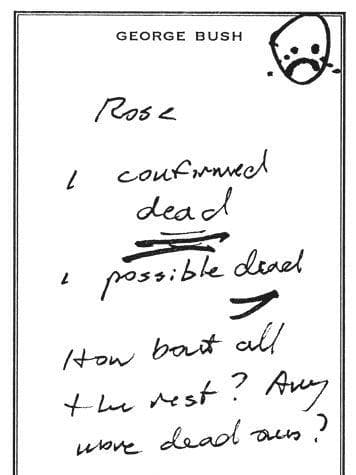 GEORGE BUSH
Rose
1 confirmed
dead
1 possible dead
How bout all
the rest? Any
more dead ones?